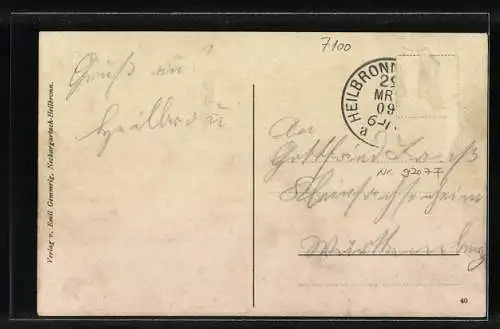 7100
Gruß aus
Heilbronn
Verlag v. Emil Gemmrig, Neckargartach-Heilbronn.
HEILBRONN
29
MRZ
09
6-7
a
An
Gottfried
Nr. 9207 I
Kleinsachsenheim
Württemberg
40